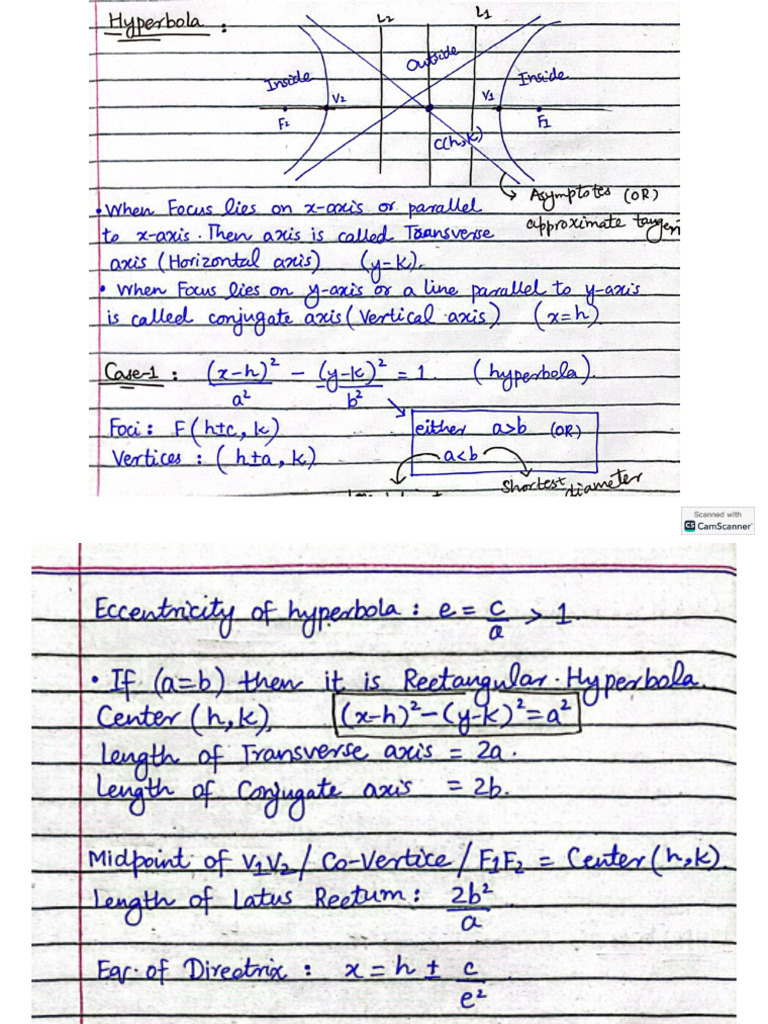 Hyperbola :
L2 L1
Outside
Inside Inside
V2 V1
F2 F1
C(h,k)
Asymptotes (OR)
• When Focus lies on x-axis or parallel
approximate
to x-axis. Then axis is called Transverse
axis (Horizontal axis) (y=k).
• When Focus lies on y-axis or a line parallel to y-axis
is called conjugate axis (Vertical axis) (x=h)
Case-1 : (x-h)²/a² - (y-k)²/b² = 1. (hyperbola).
Foci : F(h±c, k) either a>b (OR)
Vertices : (h±a, k) a<b
Shortest diameter
Scanned with
CS CamScanner
Eccentricity of hyperbola : e = c/a > 1.
• If (a=b) then it is Rectangular Hyperbola.
Center (h,k), (x-h)²-(y-k)²=a²
Length of Transverse axis = 2a.
Length of Conjugate axis = 2b.
Midpoint of V1V2 / Co-Vertice / F1F2 = Center(h,k)
Length of Latus Rectum : 2b²/a
Eqr. of Directrix : x = h ± c/e²